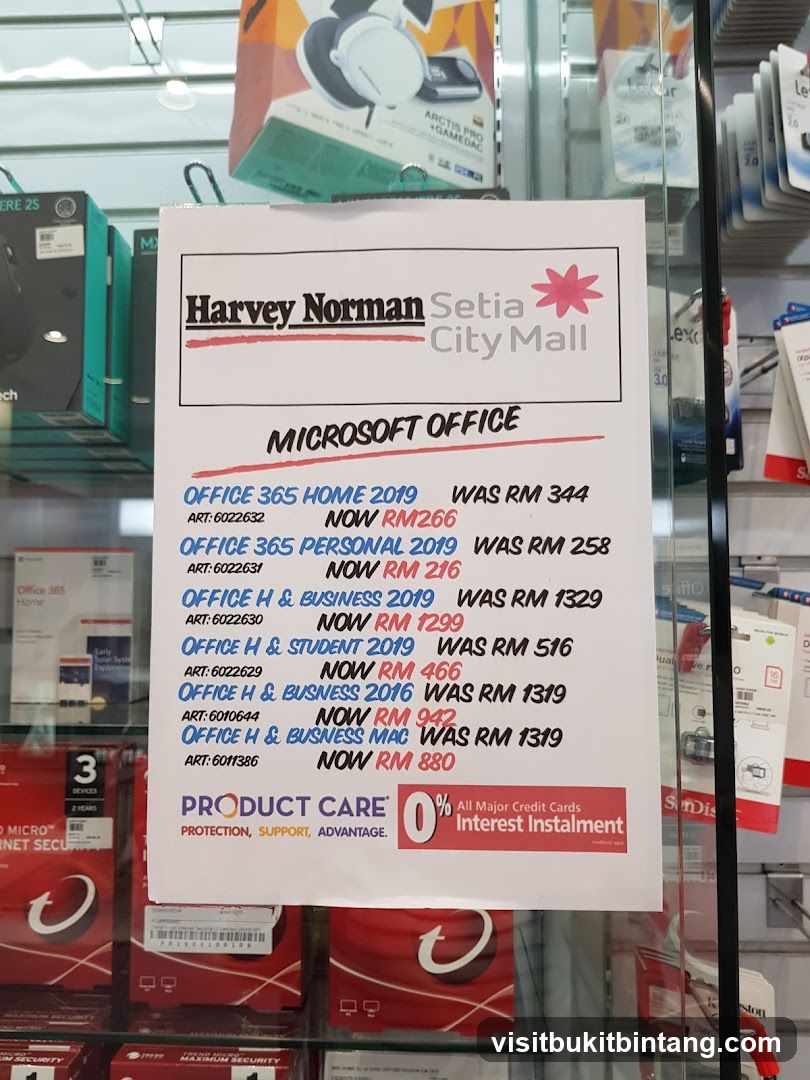 ARCTIS PRO
+GAMEDAC
ERE 2S
MX
Harvey Norman
Setia
City Mall
MICROSOFT OFFICE
OFFICE 365 HOME 2019 WAS RM 344
ART: 6022632 NOW RM266
OFFICE 365 PERSONAL 2019 WAS RM 258
ART: 6022631 NOW RM 216
OFFICE H & BUSINESS 2019 WAS RM 1329
ART: 6022630 NOW RM 1299
OFFICE H & STUDENT 2019 WAS RM 516
ART: 6022629 NOW RM 466
OFFICE H & BUSNESS 2016 WAS RM 1319
ART: 6010644 NOW RM 942
OFFICE H & BUSNESS MAC WAS RM 1319
ART: 6011386 NOW RM 880
PRODUCT CARE
PROTECTION, SUPPORT, ADVANTAGE.
0% All Major Credit Cards
Interest Instalment
Office 365
Home
3
DEVICES
2 YEARS
MICRO
NET SECU
3.0
16
SanDis
TREND MICRO
MAXIMUM SECURITY
visitbukitbintang.com